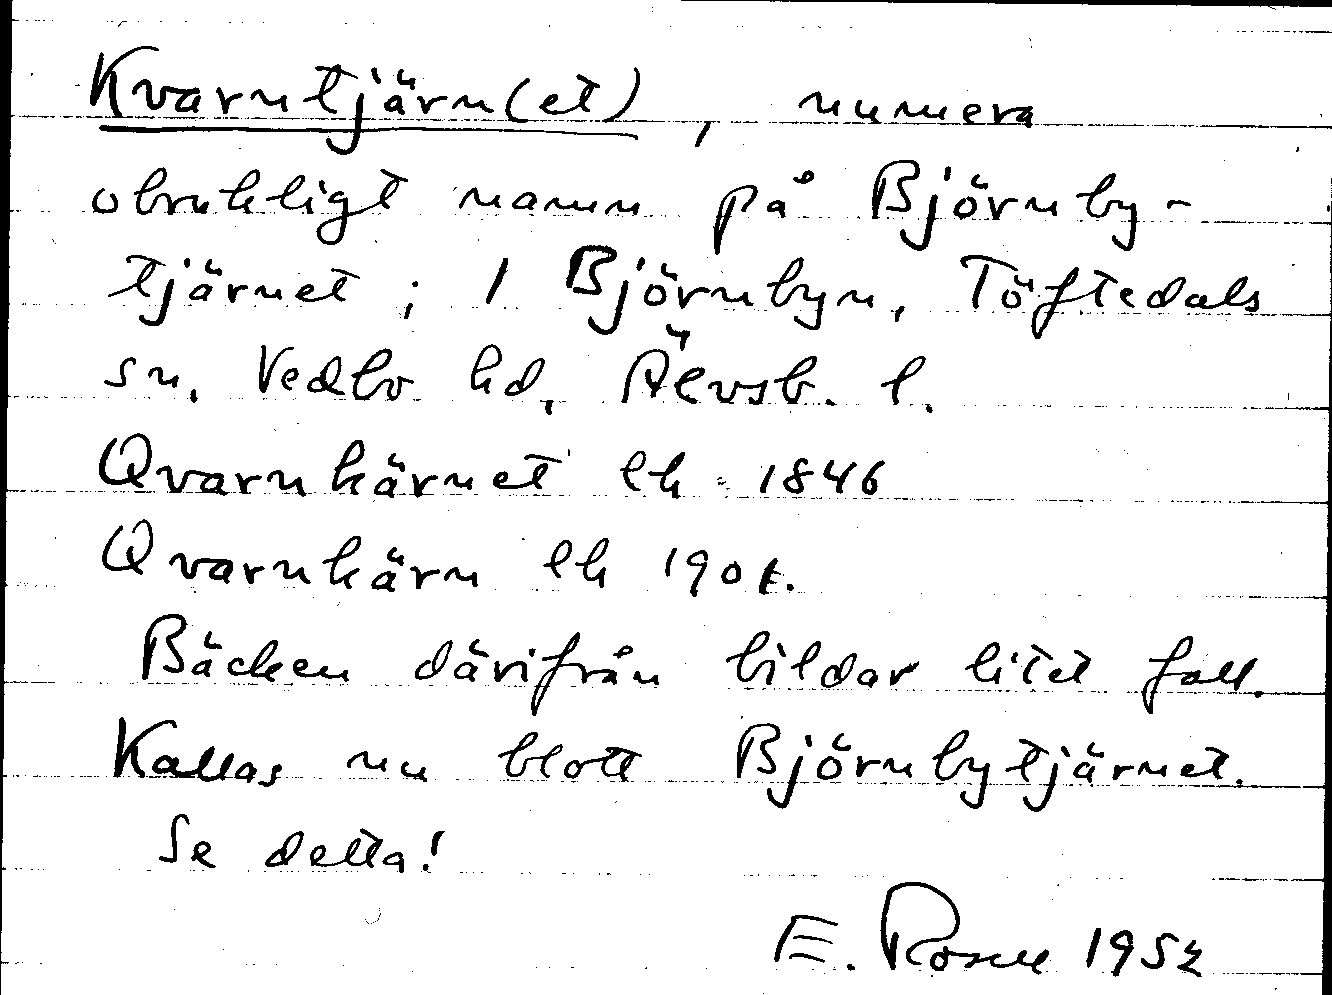 Kvarntjärn(et), numera
obrukligt namn på Björnby-
tjärnet; 1 Björnbyn, Töftedals
sn, Vedbo hd, Älvsb. l.
Qvarnkärnet lk 1846
Qvarnkärn lk 1901.
Bäcken därifrån bildar litet fall.
Kallas nu blott Björnbytjärnet.
Se detta!
E. Rosell 1952